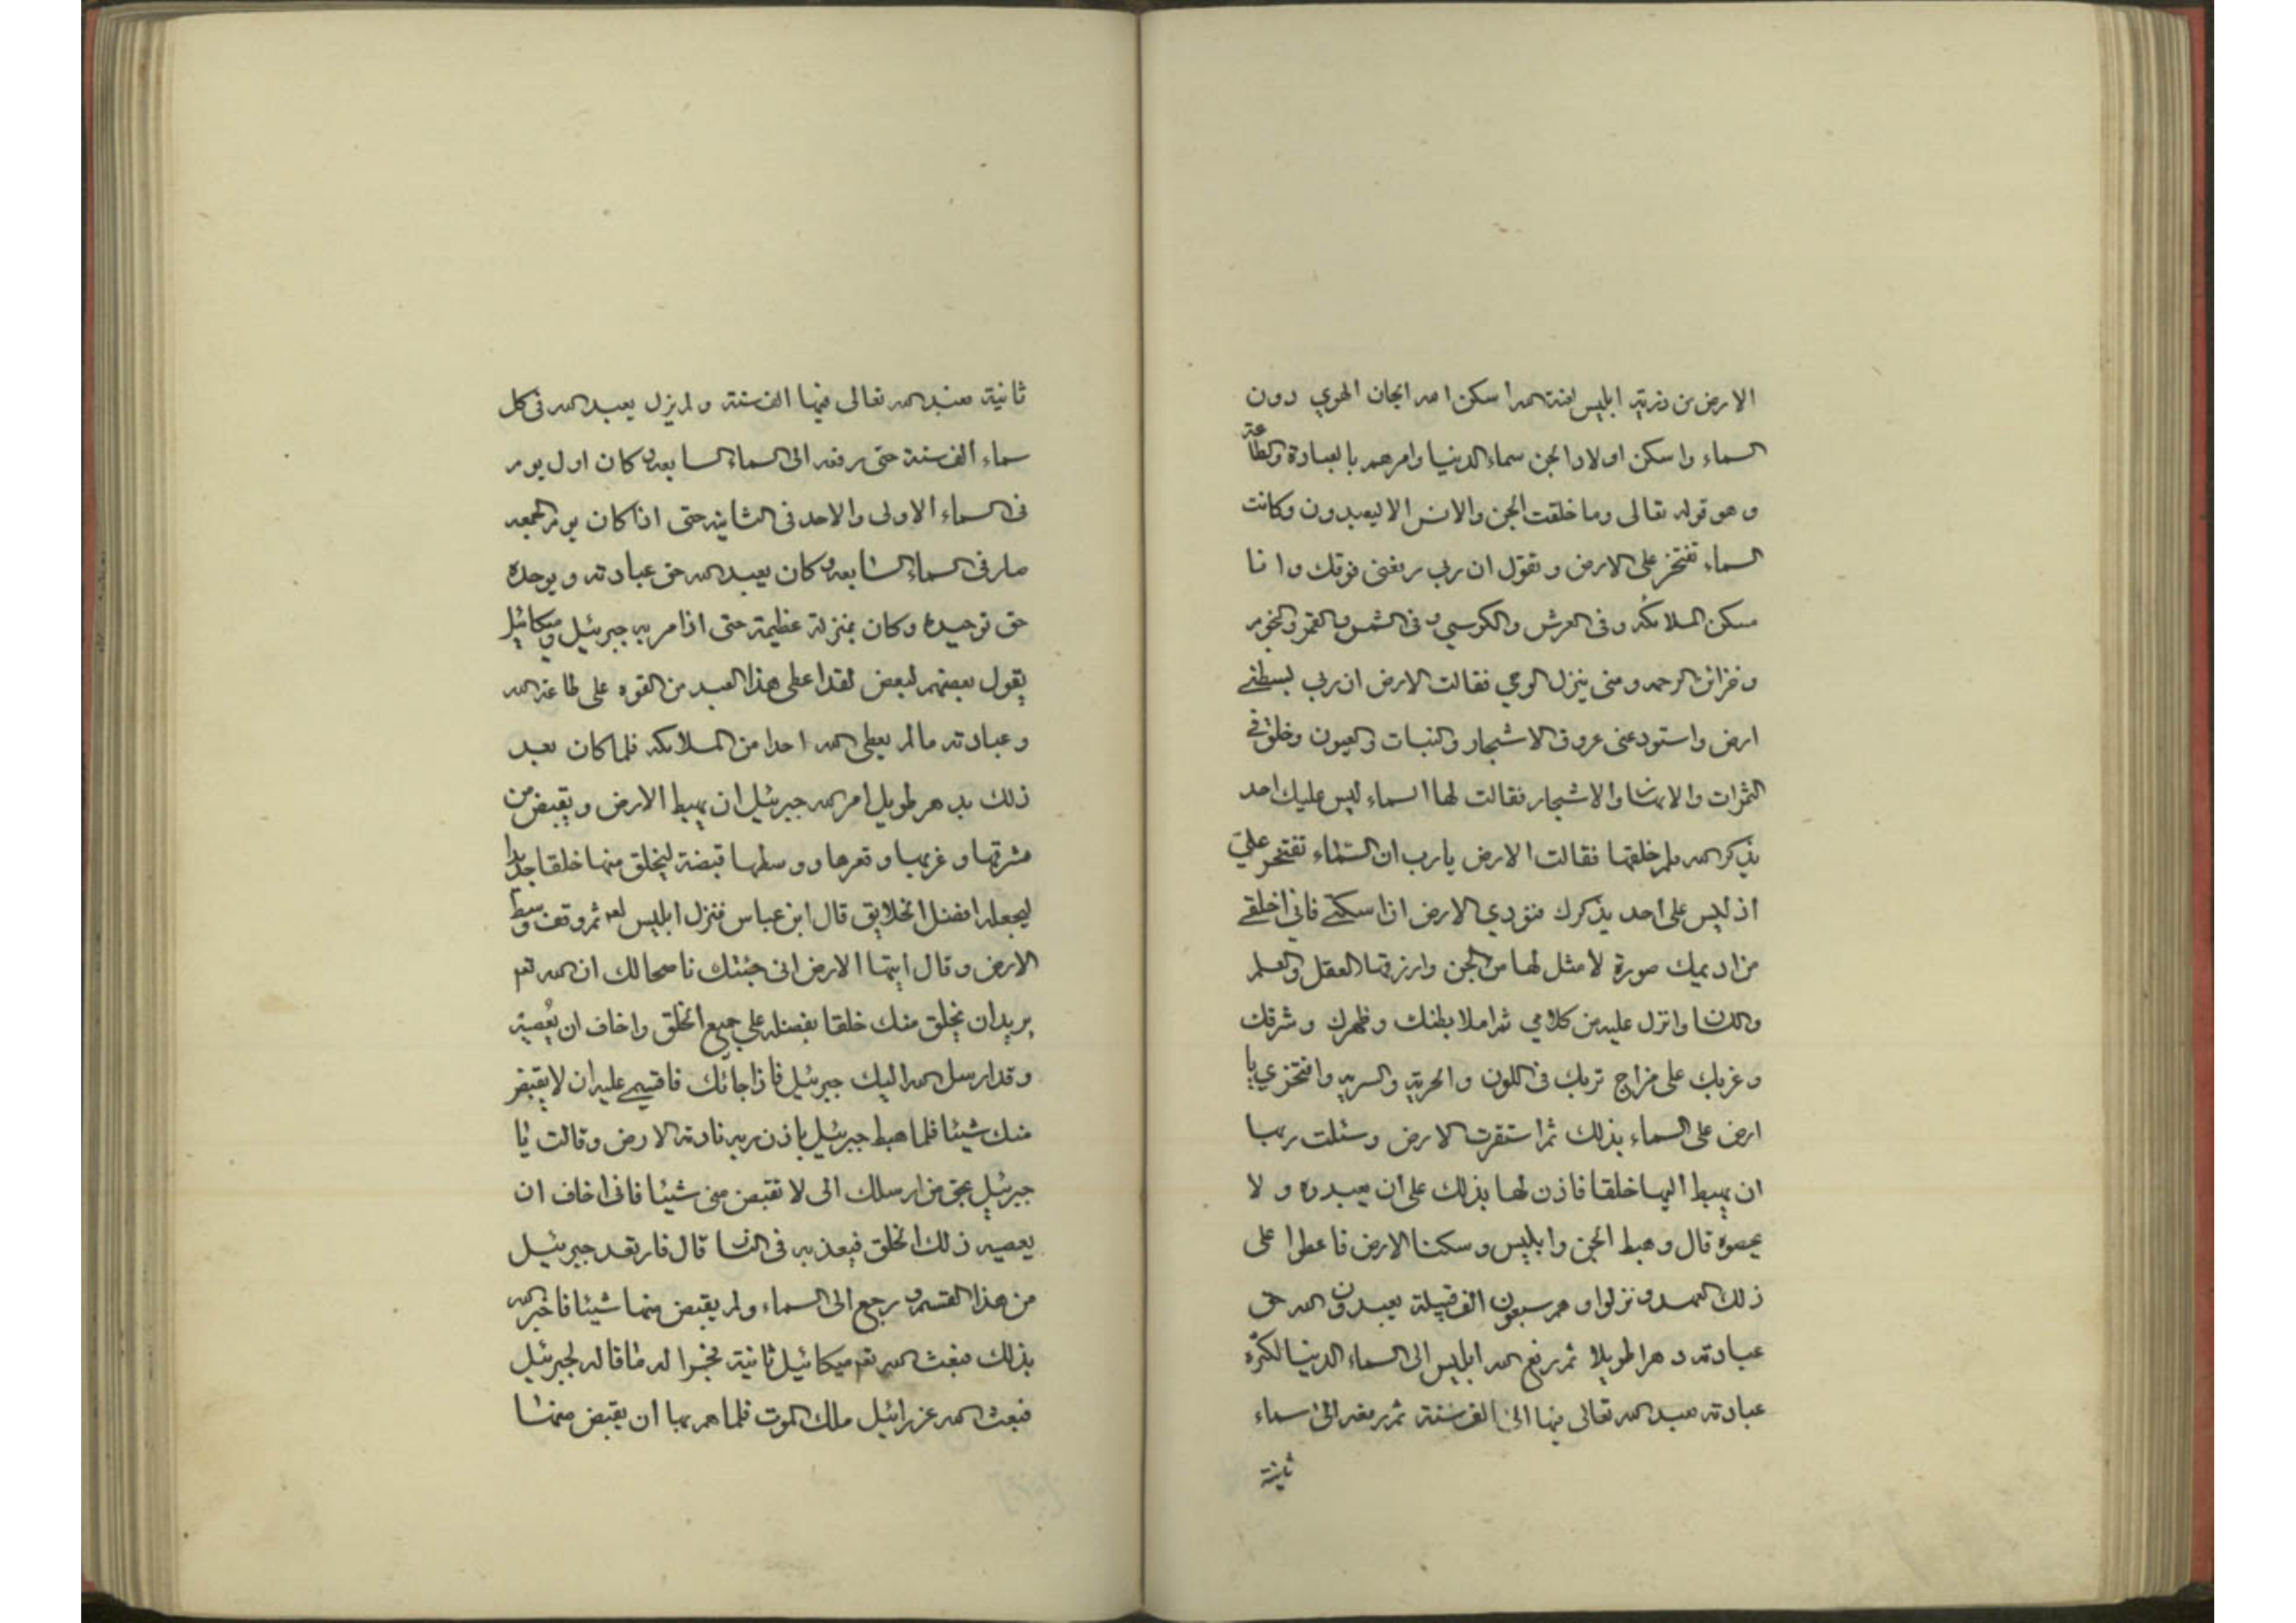 الارض من ذرية ابليس لعنه الله اسكن الله الجان الهوي دون
السماء واسكن اولاد الجن سماء الدنيا وامرهم بالعبادة والطاعة
وهو قوله تعالى وما خلقت الجن والانس الا ليعبدون وكانت
السماء تفتخر على الارض وتقول ان ربي رفعني فوقك وانا
مسكن الملائكه وفى العرش والكرسي وفى الشمس والقمر والنجوم
وخزائن الرحمه ومنى ينزل الوحي فقالت الارض ان ربي بسطني
ارض واستودعنى عروق الاشجار والنبات والعيون وخلق في
الثمرات والانهار والاشجار فقالت لها السماء ليس عليك احد
يذكر الله فلم خلقتها فقالت الارض يارب ان السماء تفتخر علي
اذ ليس على احد يذكرك فنودي الارض اذا سكتي فاني اخلق
من اديمك صورة لا مثل لها من الجن وارزقها العقل والعلم
واللسان وانزل عليه من كلامي ثم املا بطنك وظهرك وشرقك
وغربك على مزاج تربك فى اللون والحرية والسريه وافتخري يا
ارض على السماء بذلك ثم استقرت الارض وسئلت ربها
ان يهبط اليها خلقا فاذن لها بذلك على ان يعبدوه ولا
يعصوه قال وهبط الجن وابليس وسكنا الارض فاعطوا على
ذلك العهد ونزلوا وهم سبعون الف قبيلة يعبدون الله حق
عبادته دهرا طويلا ثم رفع الله ابليس الى السماء الدنيا لكثرة
عبادته فعبد الله تعالى فيها الى الف سنة ثم رفعه الى سماء
ثانية
ثانية فعبد الله تعالى فيها الف سنة ولم يزل يعبد الله فى كل
سماء الف سنة حتى رفعه الى السماء السابعه وكان اول يوم
فى السماء الاولى والاحد فى الثانيه حتى اذا كان يوم الجمعه
صار فى السماء السابعه وكان يعبد الله حق عبادته ويوحده
حق توحيده وكان بمنزلة عظيمة حتى اذا مر به جبرئيل وميكائيل
يقول بعضهم لبعض لقد اعطى هذا العبد من القوه على طاعة الله
وعبادته مالم يعطى الله احدا من الملائكه فلما كان بعد
ذلك بدهر طويل امر الله جبرئيل ان يهبط الارض ويقبض من
مشرقها وغربها وقعرها ووسطها قبضة ليخلق منها خلقا جديدا
ليجعله افضل الخلايق قال ابن عباس فنزل ابليس لعه ثم وقف وسط
الارض وقال ايتها الارض انى جئتك ناصحا لك ان الله تعم
يريد ان يخلق منك خلقا يفضله على جميع الخلق واخاف ان يعصيه
وقد ارسل الله اليك جبرئيل فاذا جائك فاقسمي عليه ان لا يقبض
منك شيئا فلما هبط جبرئيل باذن ربه نادته الارض وقالت يا
جبرئيل بحق من ارسلك الى لا تقبض منى شيئا فانى اخاف ان
يعصيه ذلك الخلق فيعذبه فى النار قال فارتعد جبرئيل
من هذا القسم ورجع الى السماء ولم يقبض منها شيئا فاخبر الله
بذلك فبعث الله تعم ميكائيل ثانية فجرا له ما قاله لجبرئيل
فبعث الله عزرائيل ملك الموت فلما هم بها ان يقبض منها